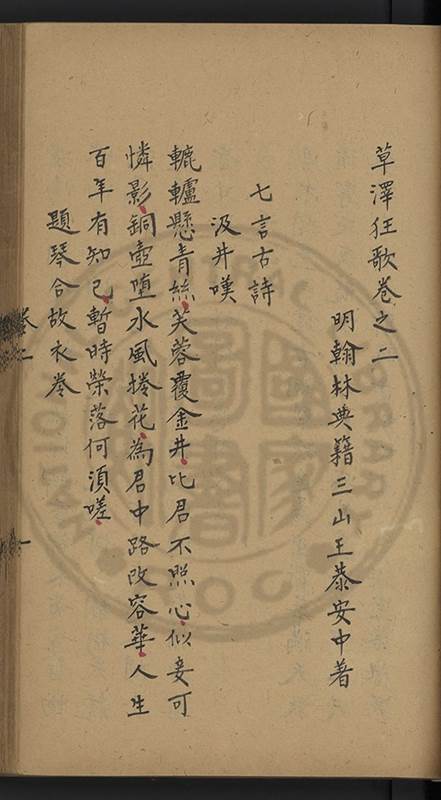 草澤狂歌卷之二
明翰林典籍三山王恭安中著
七言古詩
汲井嘆
轆轤懸青絲芙蓉覆金井比君不照心似妾可
憐影銅壺墮水風捲花為君中路改容華人生
百年有知己暫時榮落何須嗟
題琴合故衣卷
卷二
一